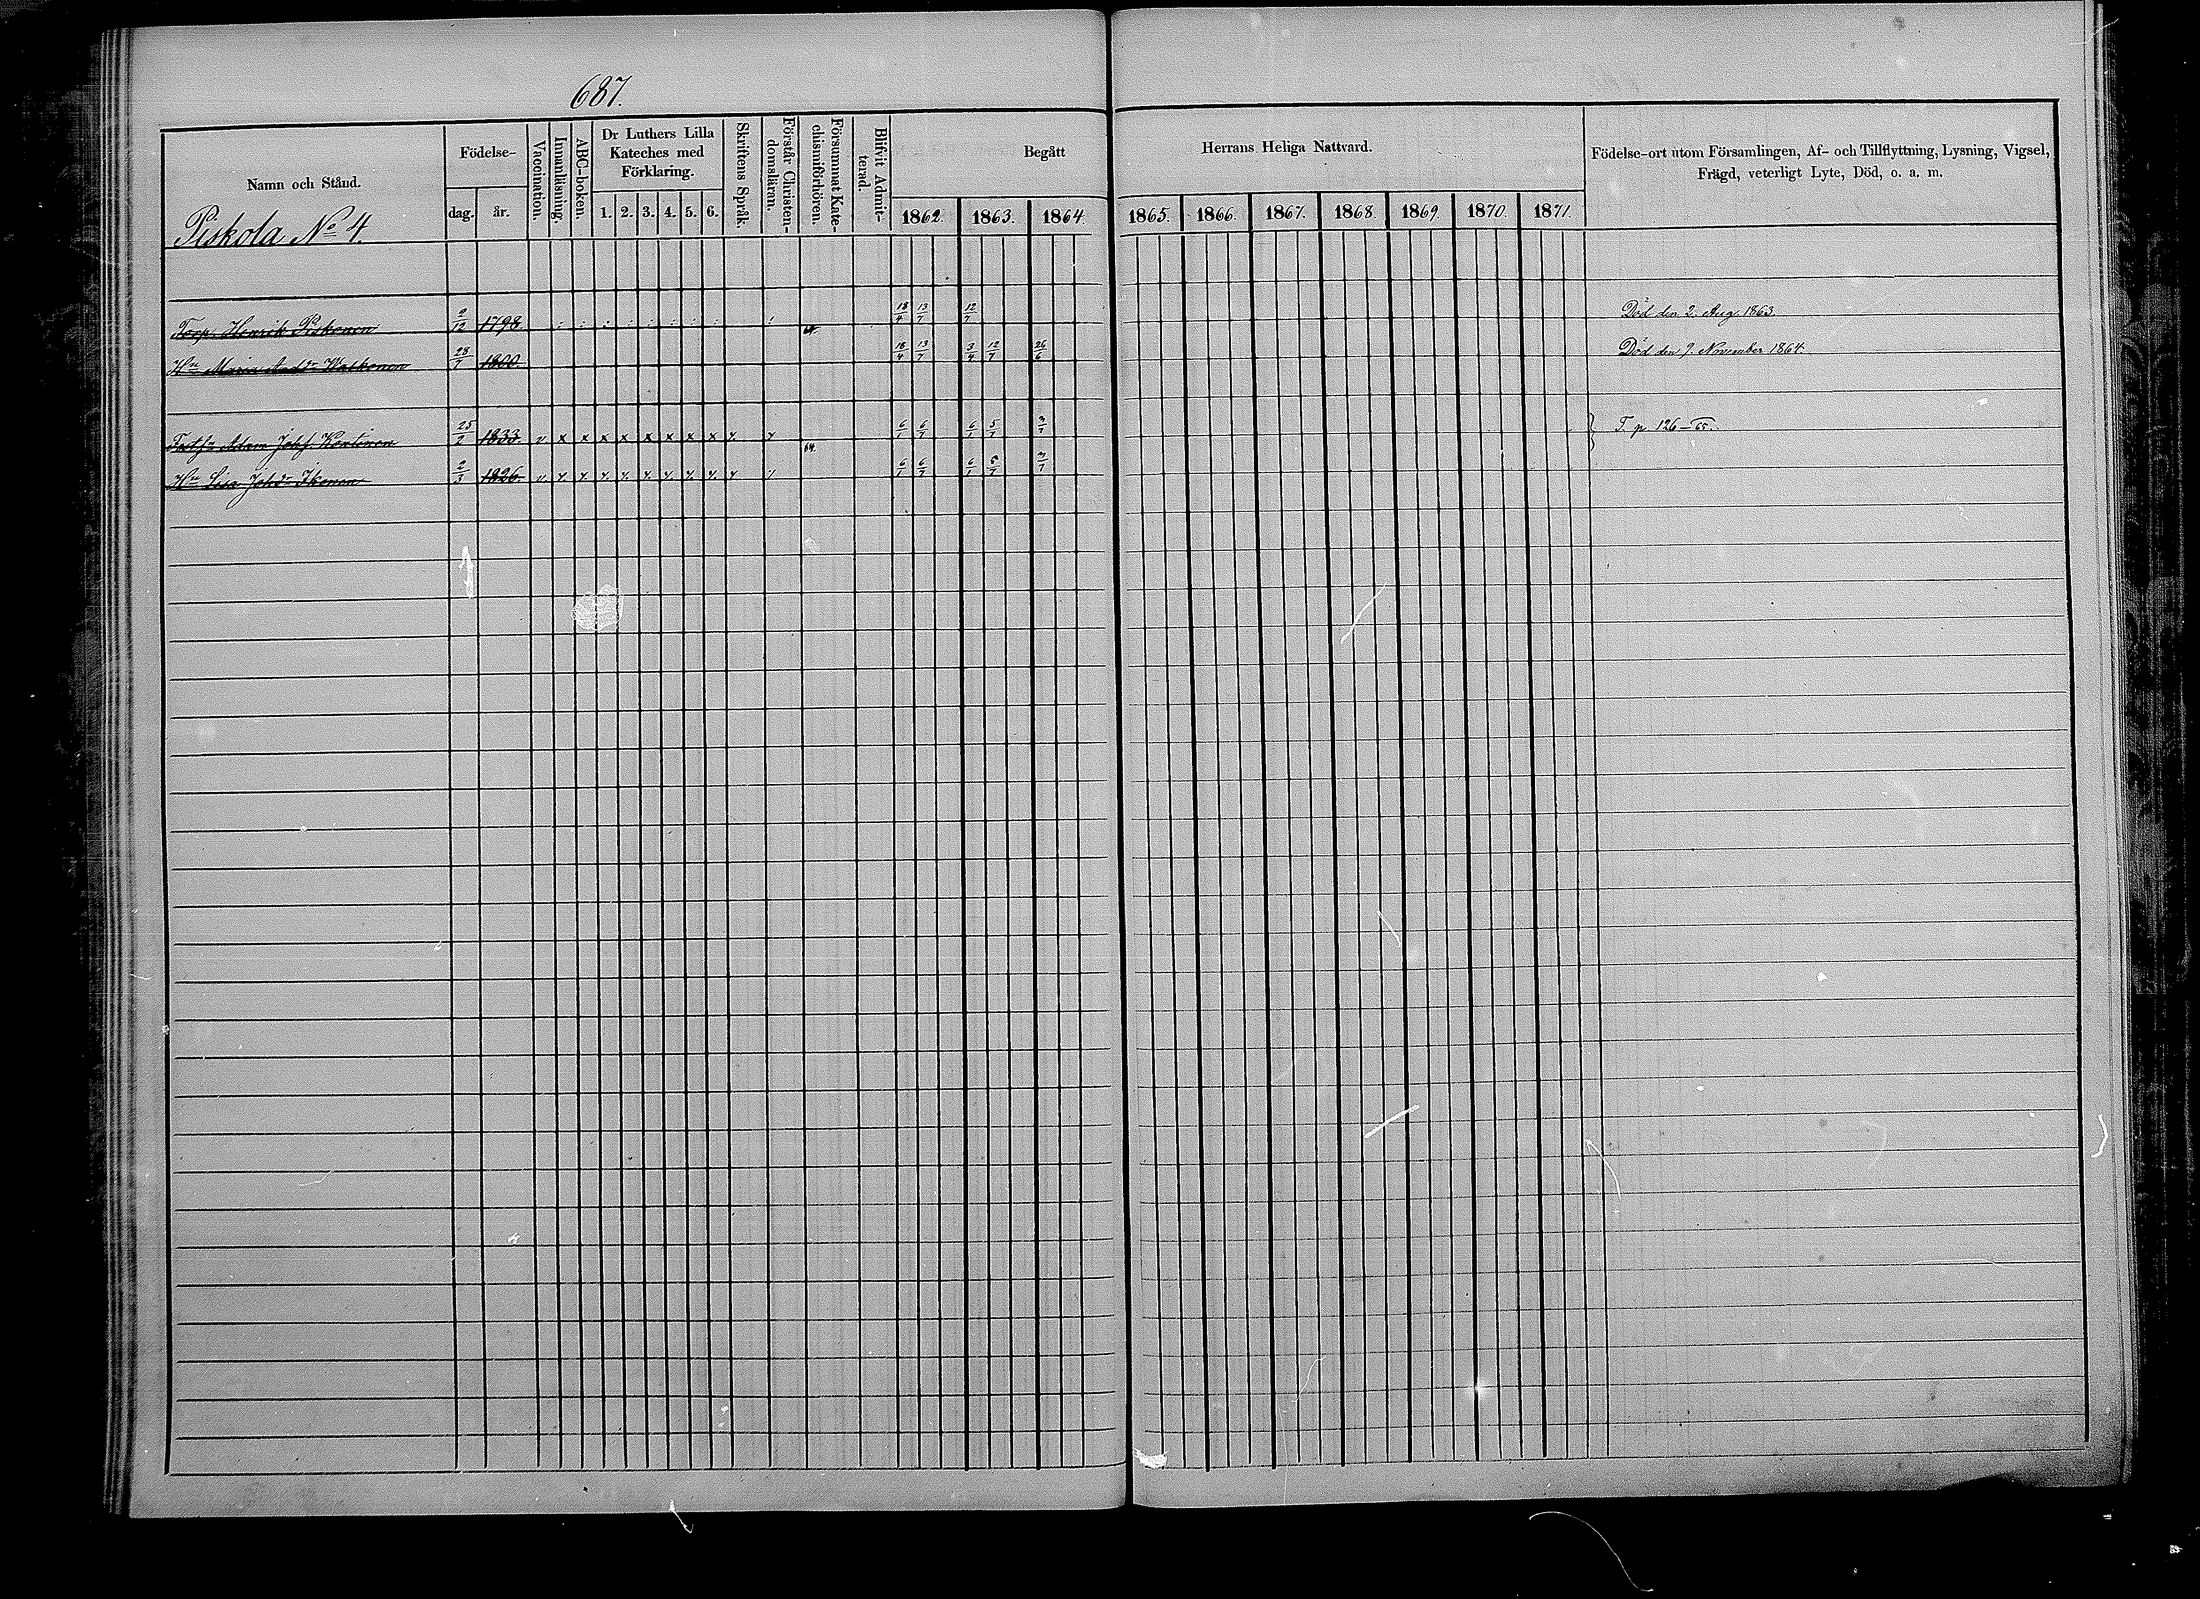 687.
Namn och Stånd.
Piskola No 4.
Födelse-
dag. år.
Vaccination.
Innanläsning.
ABC-boken.
Dr Luthers Lilla
Kateches med
Förklaring.
1. 2. 3. 4. 5. 6.
Skriftens Språk.
Förstår Christen-
domsläran.
Försummat Kate-
chismiförhören.
Blifvit Admit-
terad.
Begått
Herrans Heliga Nattvard.
1862. 1863. 1864
1865. 1866. 1867. 1868. 1869. 1870. 1871.
Födelse-ort utom Församlingen, Af- och Tillflyttning, Lysning, Vigsel,
Frägd, veterligt Lyte, Död, o. a. m.
Torp. Henrik Piskonen 2/12 1798 : : : : : : : : : 64. 18/4 13/7 12/7 Död den 2. Aug. 1863.
Hu Maria Andr. 28/7 1800. 18/4 13/7 3/4 12/7 26/6 Död den 9. November 1864.
Adam Johs. Kontinen 25/2 1833 v. x x x x x x x x x x 64. 6/1 6/7 6/1 5/7 3/7 } T. p 126-65.
Hu Lisa Johdr Ikonen 2/3 1826. v. x x x x x x x x x x 6/1 6/7 6/1 5/7 3/7